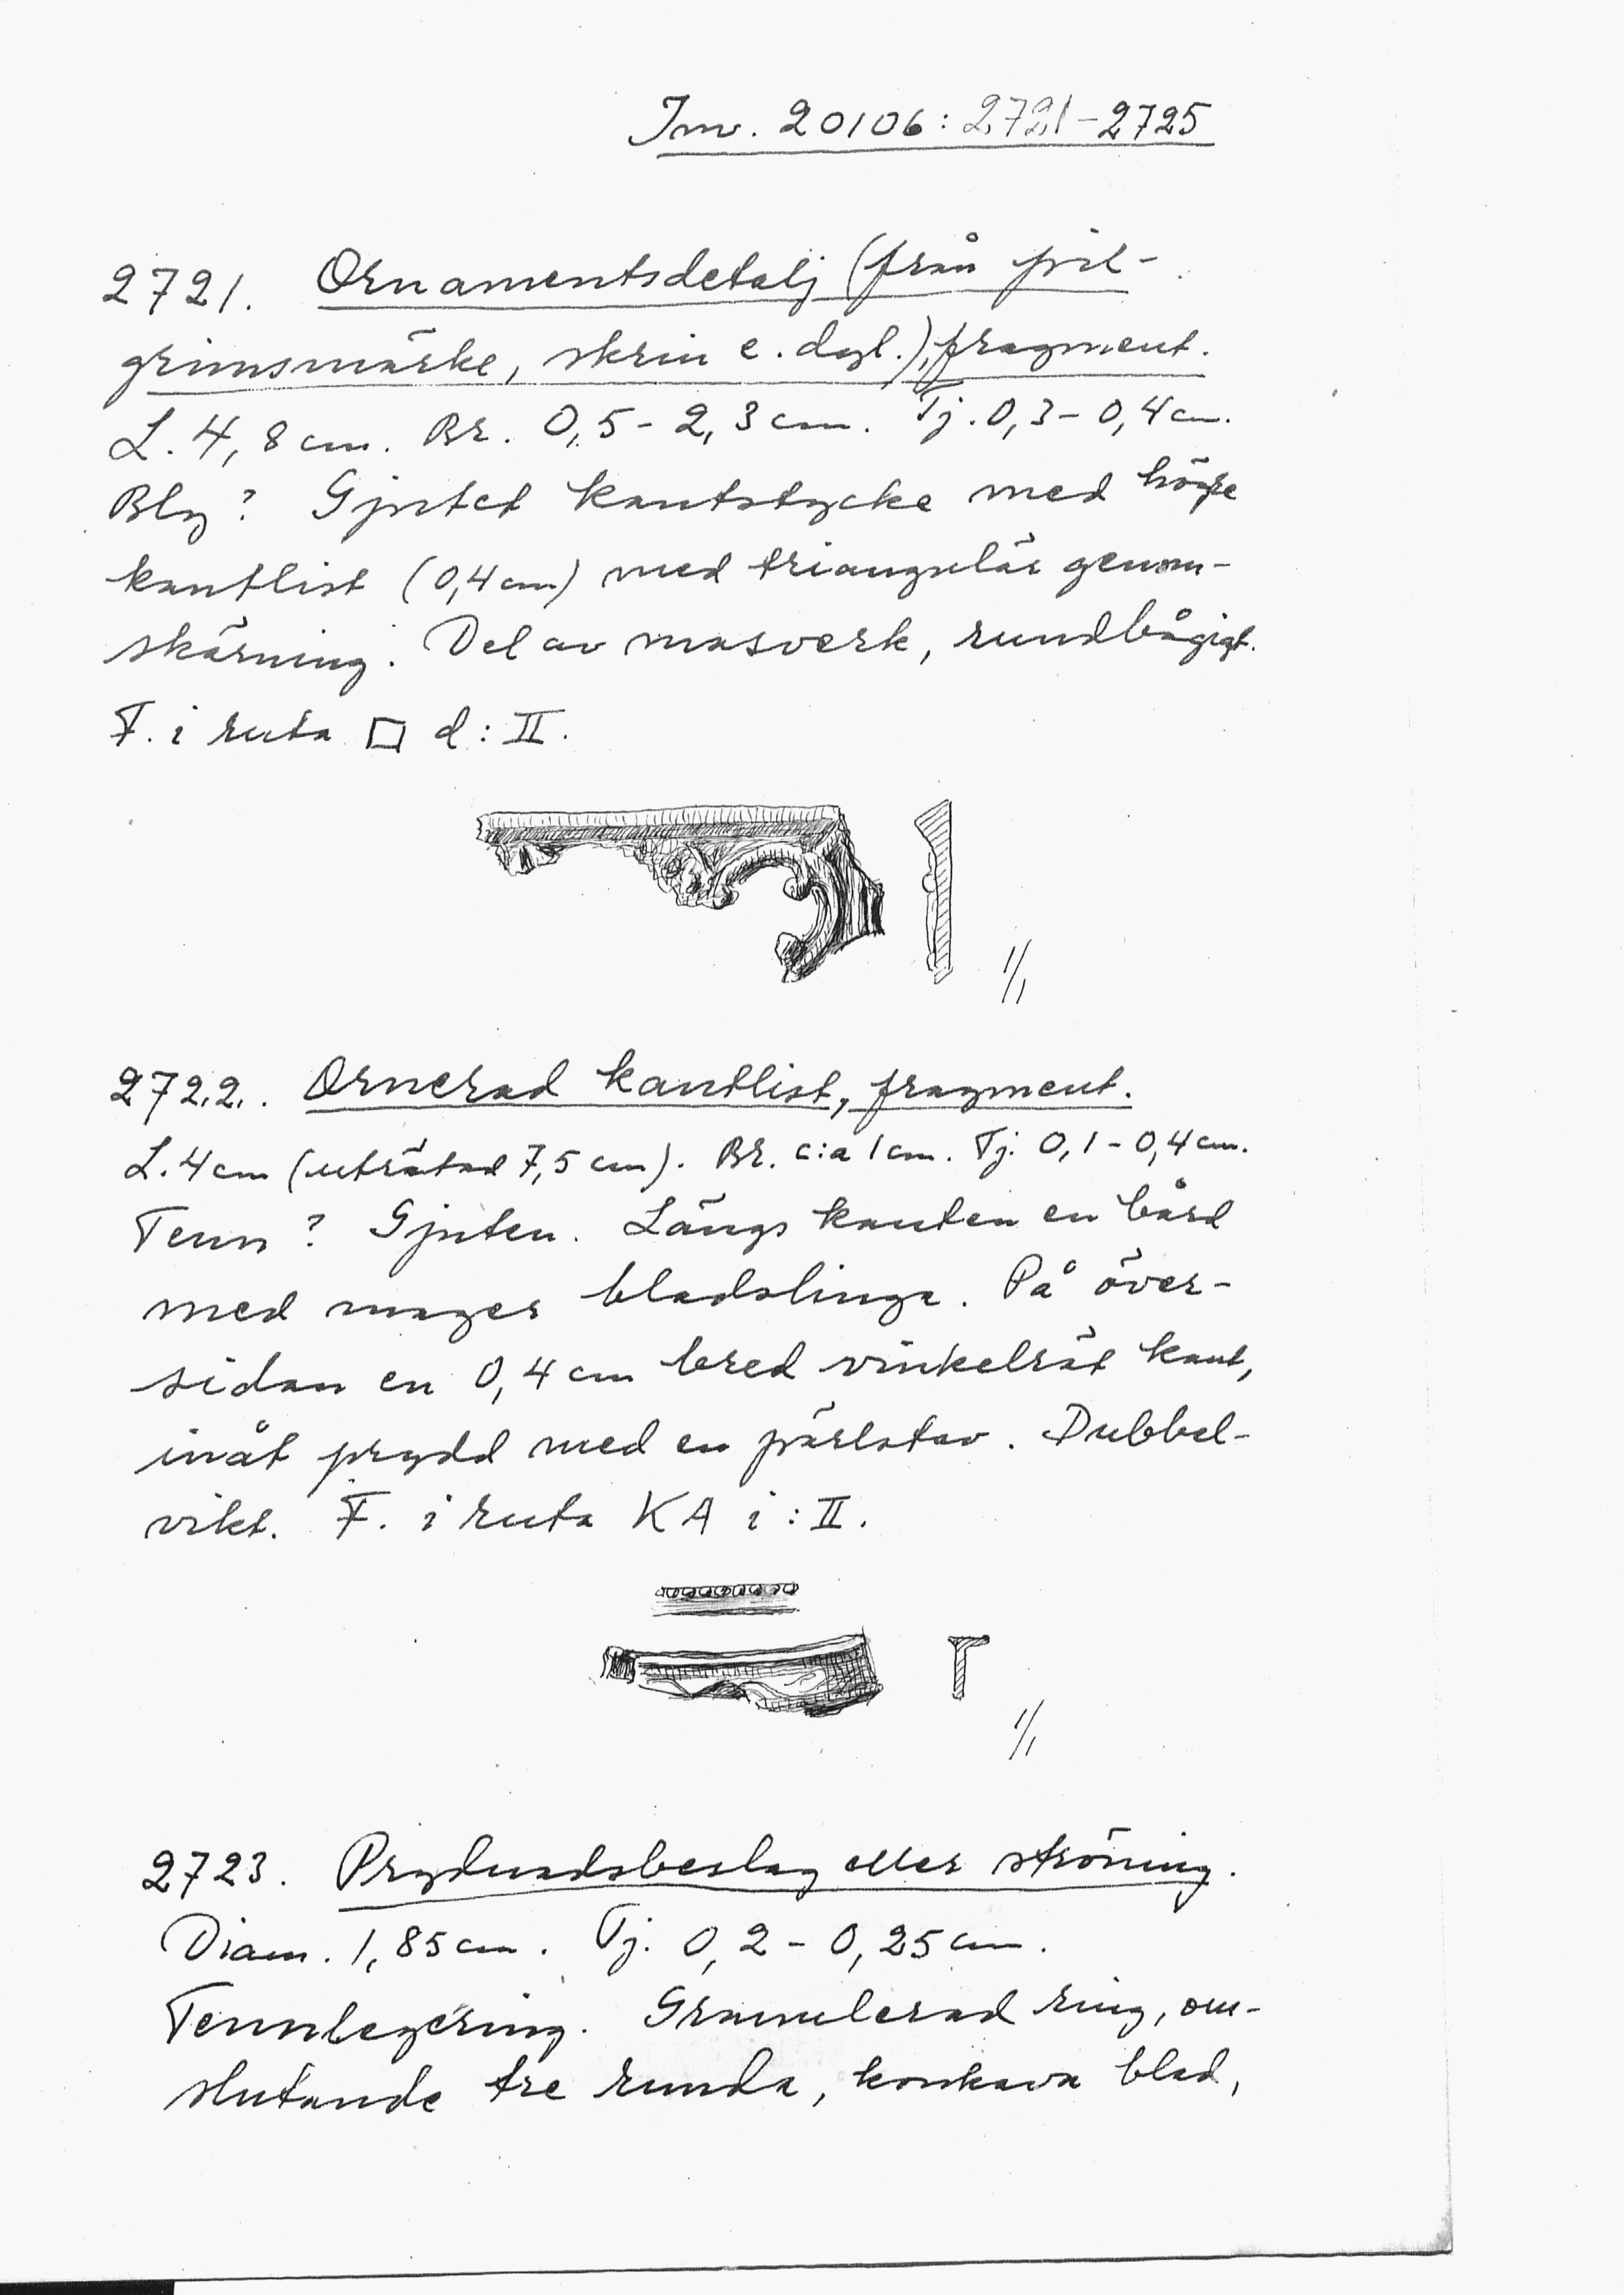 Inv. 20106: 2721-2725
2721. Ornamentsdetalj (från pil-
grimsmärke, skrin e. dyl.), fragment.
L. 4,8 cm. Br. 0,5-2,3 cm. Tj. 0,3-0,4 cm.
Bly? Gjutet kantstycke med högre
kantlist (0,4 cm) med triangulär genom-
skärning. Del av masverk, rundbågigt.
F. i ruta □ d: II.
1/1
2722. Ornerad kantlist, fragment.
L. 4 cm (uträtad 7,5 cm). Br. c:a 1 cm. Tj. 0,1-0,4 cm.
Tenn? Gjuten. Längs kanten en bård
med mager bladslinga. På över-
sidan en 0,4 cm bred vinkelrät kant,
inåt prydd med en pärlstav. Dubbel-
vikt. F. i ruta KA i: II.
1/1
2723. Prydnadsbeslag eller ströning.
Diam. 1,85 cm. Tj. 0,2-0,25 cm.
Tennlegering. Granulerad ring, om-
slutande tre runda, konkava blad,